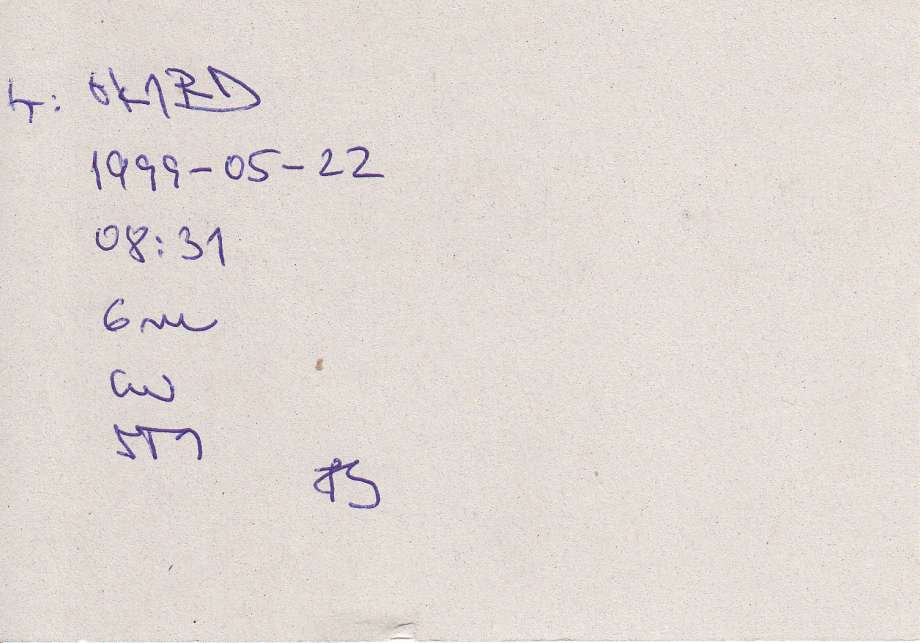 OK1RD
1999-05-22
08:31
6m
cw